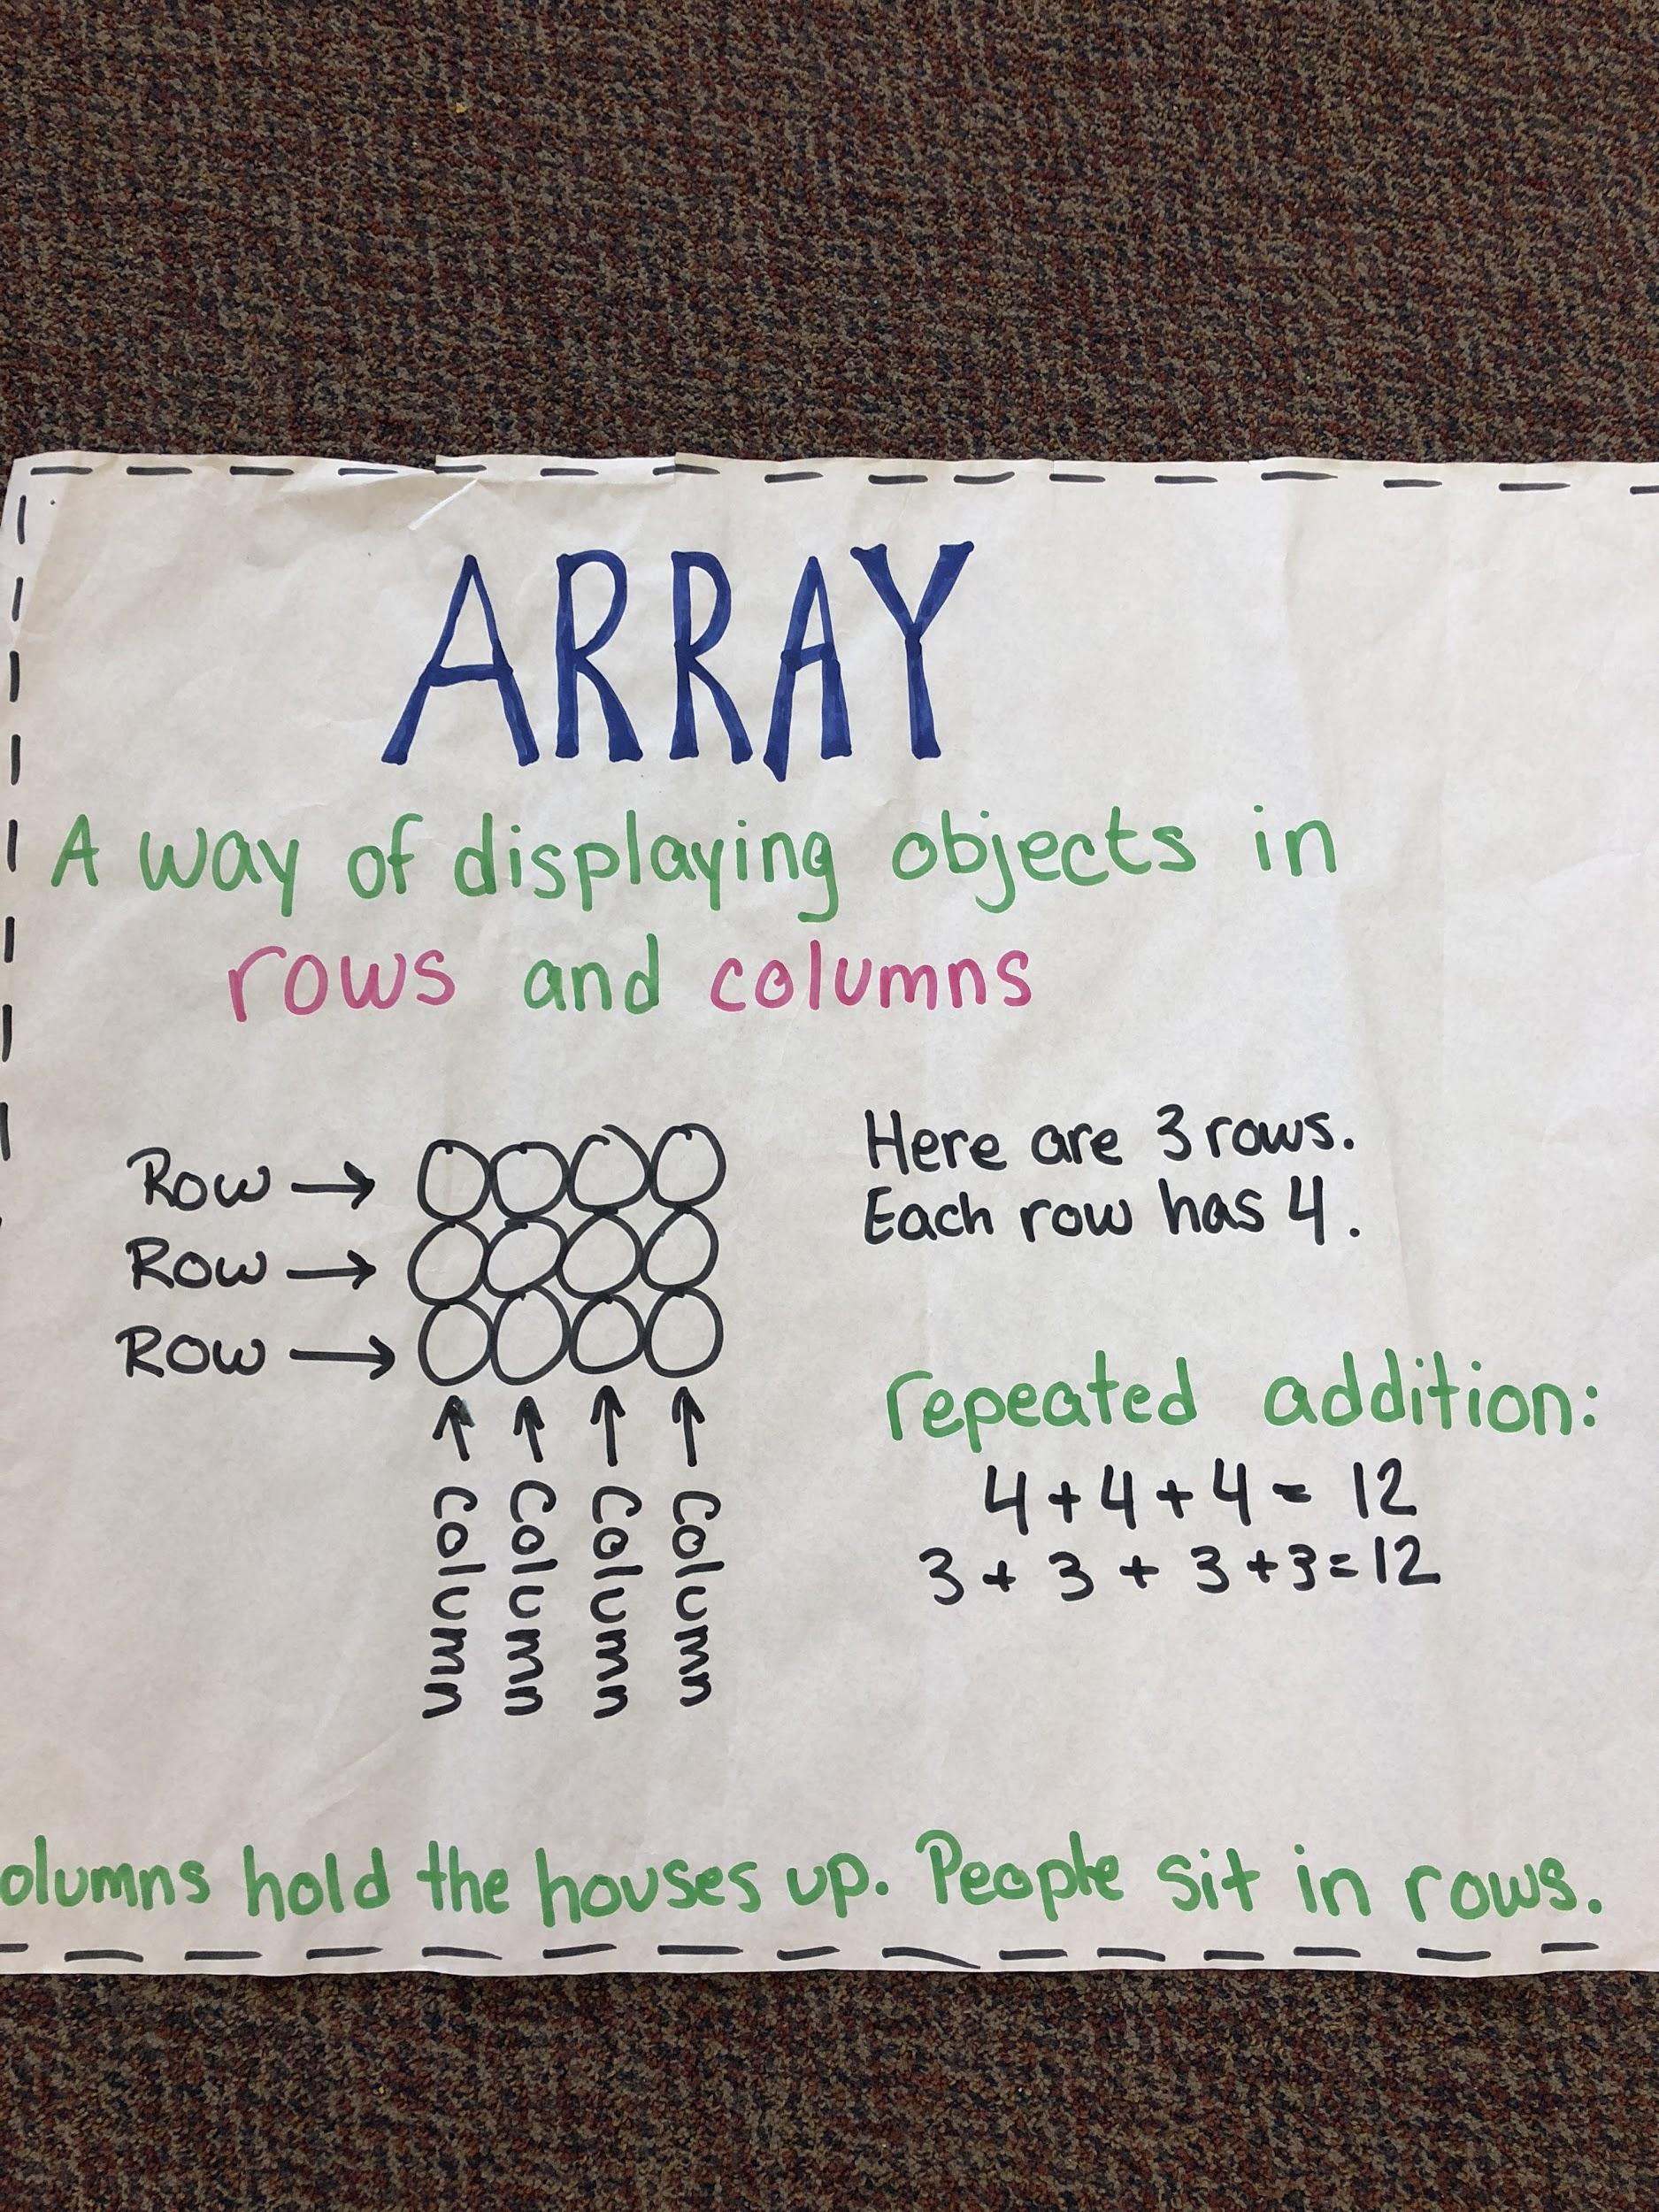 ARRAY
A way of displaying objects in
rows and columns
Row
Row
Row
Column
Column
Column
Column
Here are 3 rows.
Each row has 4.
repeated addition:
4+4+4= 12
3+3+3+3=12
olumns hold the houses up. People sit in rows.